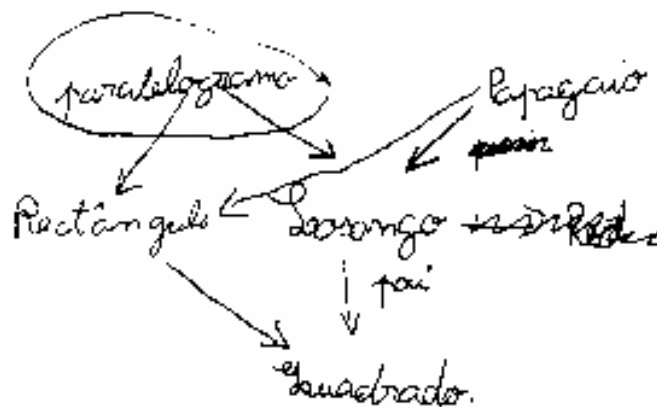 paralelogramo
Papagaio
Rectângulo Losango
pai
Quadrado.